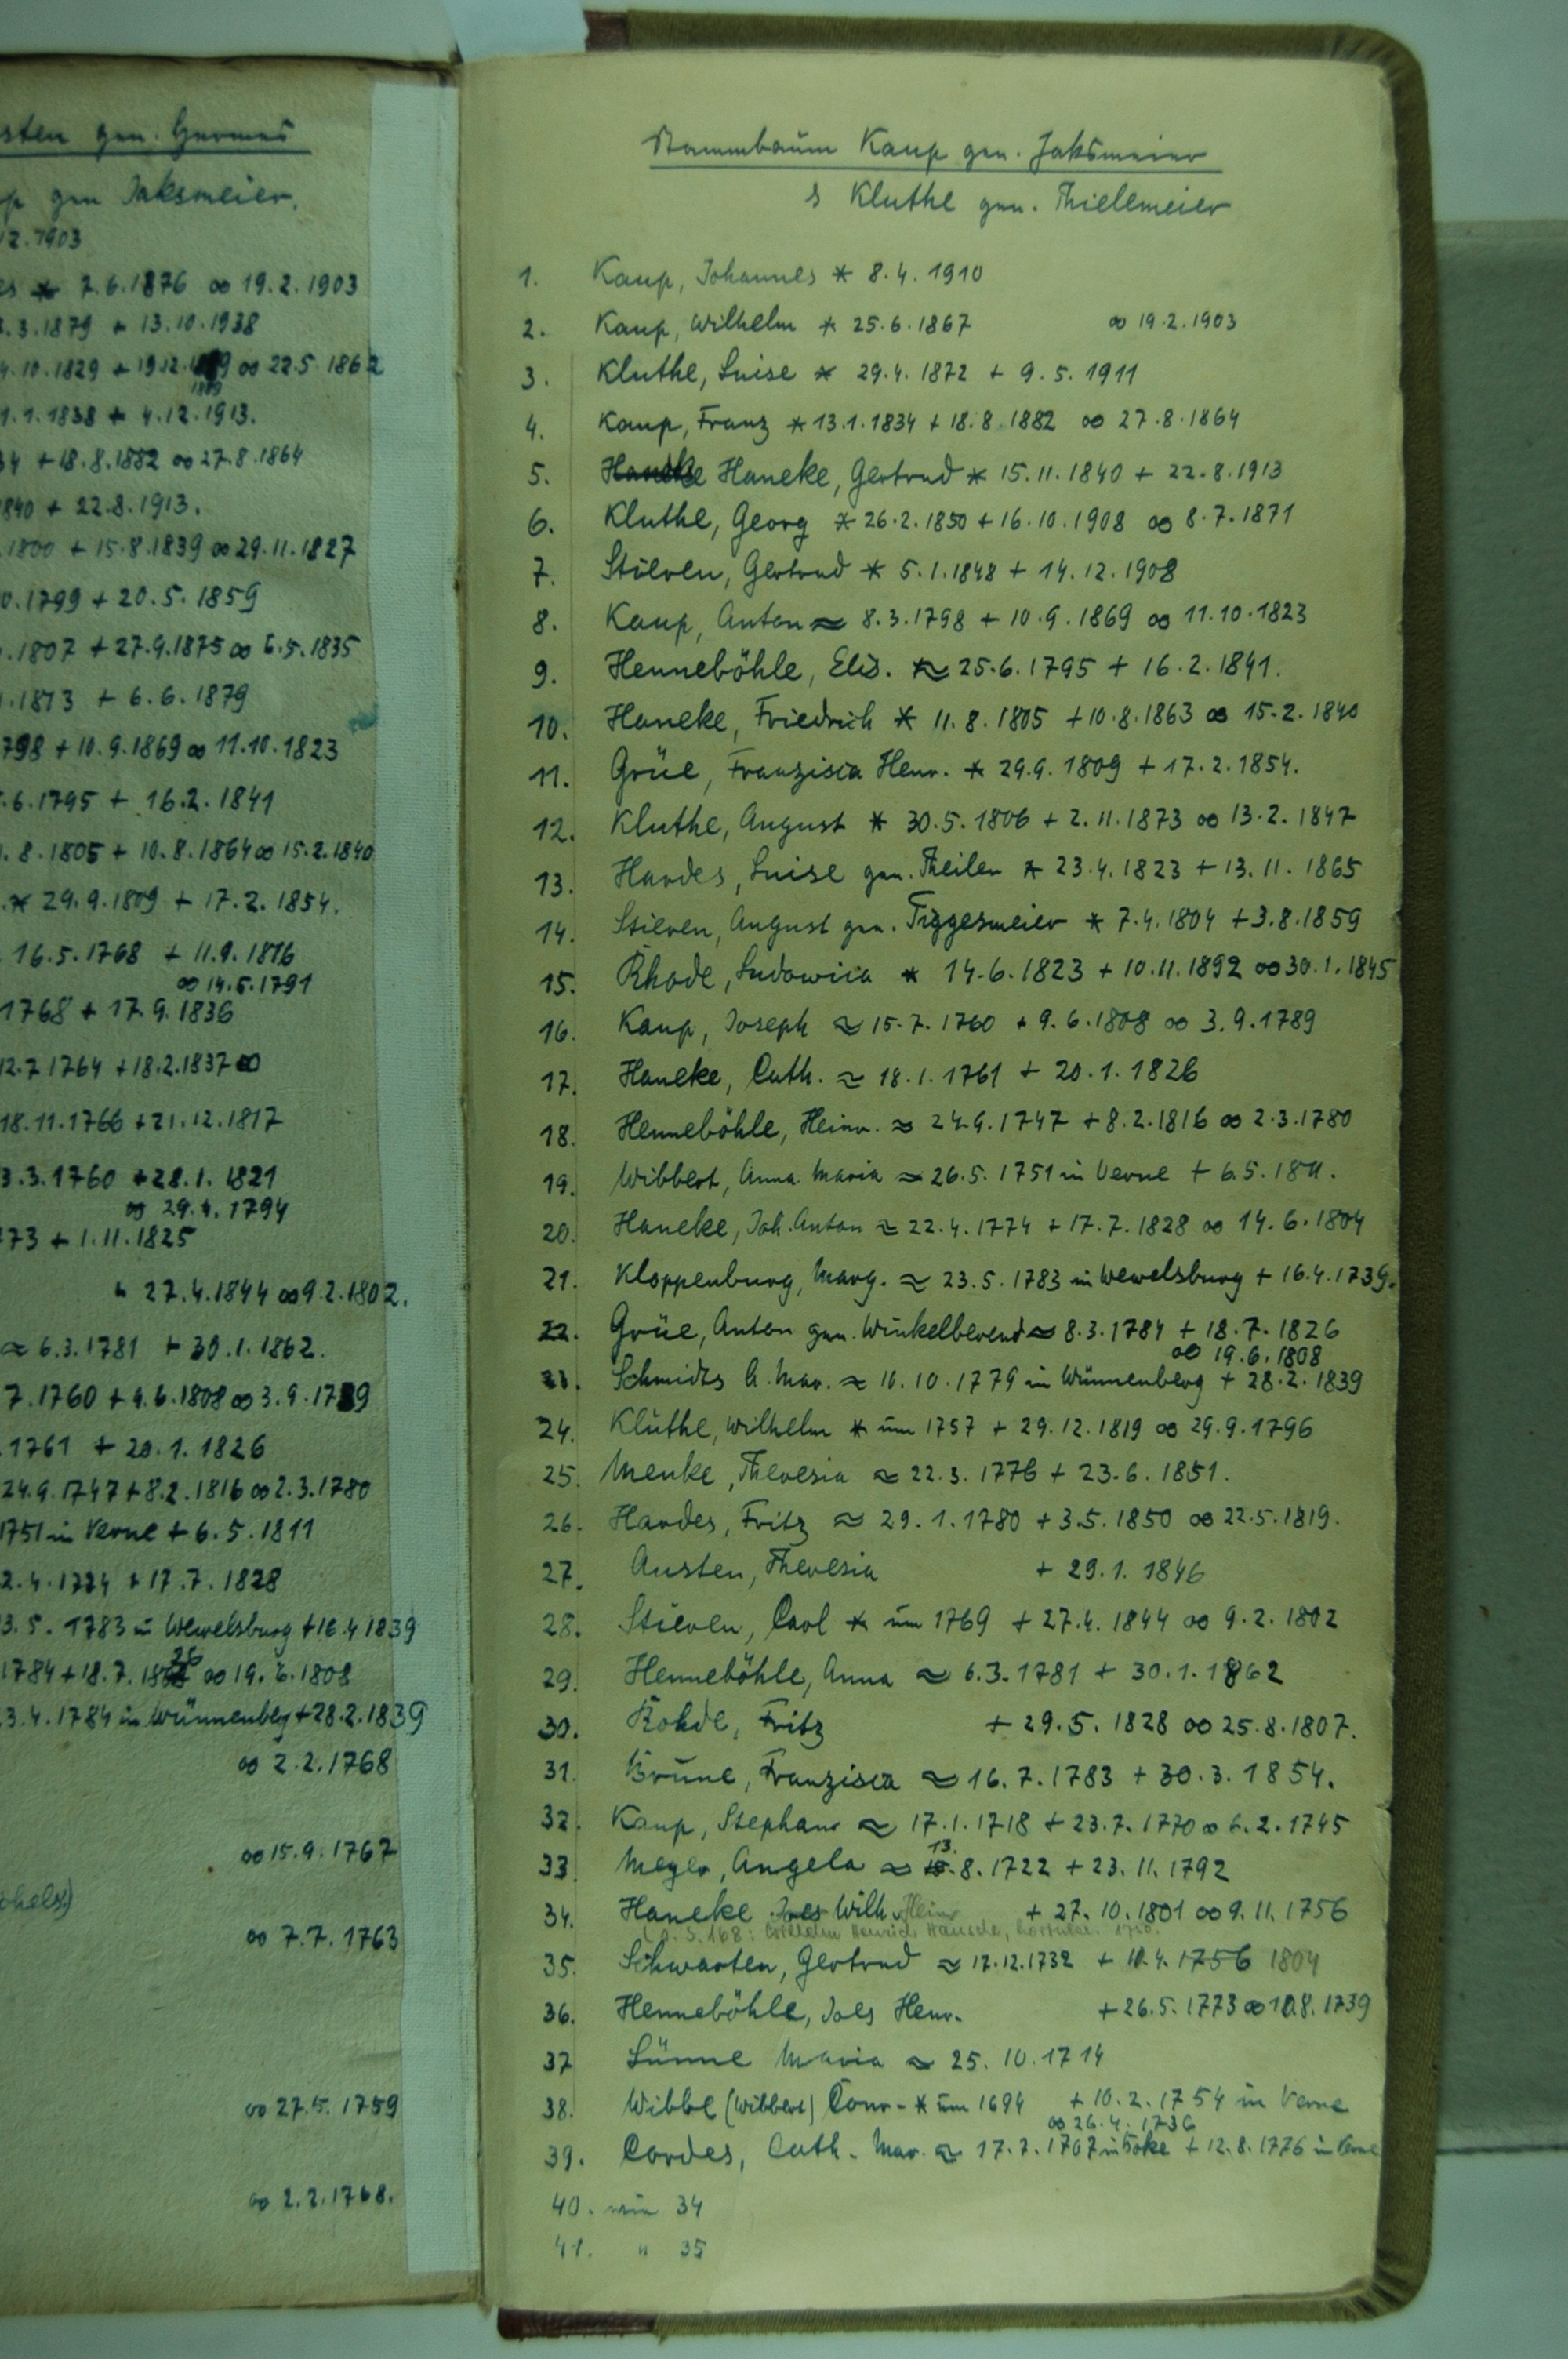 sten gen. Germes
p gen Jaksmeier.
12.1903
es * 7.6.1876 ∞ 19.2.1903
.3.1879 + 13.10.1938
4.10.1829 + 19.12. ∞ 22.5.1862
1.1.1838 + 4.12.1913.
34 + 18.8.1882 ∞ 27.8.1864
1840 + 22.8.1913.
.1800 + 15.8.1839 ∞ 29.11.1827
0.1799 + 20.5.1859
.1807 + 27.9.1875 ∞ 6.5.1835
.1813 + 6.6.1879
798 + 10.9.1869 ∞ 11.10.1823
.6.1795 + 16.2.1841
1.8.1805 + 10.8.1864 ∞ 15.2.1840
.* 29.9.1809 + 17.2.1854.
16.5.1768 + 11.9.1816
∞ 14.5.1791
1768 + 17.9.1836
12.7 1764 + 18.2.1837 ∞
18.11.1766 + 21.12.1817
3.3.1760 + 28.1.1821
∞ 29.4.1794
73 + 1.11.1825
27.4.1844 ∞ 9.2.1802.
≈ 6.3.1781 + 30.1.1862.
7.1760 + 9.6.1808 ∞ 3.9.1789
.1761 + 20.1.1826
24.9.1747 + 8.2.1816 ∞ 2.3.1780
1751 in Verne + 6.5.1811
2.4.1774 + 17.7.1828
3.5.1783 in Wewelsburg + 16.4 1839
1784 + 18.7.1826 ∞ 19.6.1808
3.4.1784 in Wünnenbeg + 28.2.1839
∞ 2.2.1768
∞ 15.9.1767
∞ 7.7.1763
∞ 27.5.1759
∞ 2.2.1768.
Stammbaum Kaup gen. Jaksmeier
s Kluthe gen. Thielemeier
1. Kaup, Johannes * 8.4.1910
2. Kaup, Wilhelm * 25.6.1867 ∞ 19.2.1903
3. Kluthe, Luise * 29.4.1872 + 9.5.1911
4. Kaup, Franz * 13.1.1834 + 18.8.1882 ∞ 27.8.1864
5. Haneke, Gertrud * 15.11.1840 + 22.8.1913
6. Kluthe, Georg * 26.2.1850 + 16.10.1908 ∞ 8.7.1871
7. Stieren, Gertrud * 5.1.1848 + 14.12.1908
8. Kaup, Anton ≈ 8.3.1798 + 10.9.1869 ∞ 11.10.1823
9. Henneböhle, Elis. ≈ 25.6.1795 + 16.2.1841.
10. Haneke, Friedrich * 11.8.1805 + 10.8.1863 ∞ 15.2.1840
11. Grüe, Franzisca Henr. * 29.9.1809 + 17.2.1854.
12. Kluthe, August * 30.5.1806 + 2.11.1873 ∞ 13.2.1847
13. Hardes, Luise gen. Theilen * 23.4.1823 + 13.11.1865
14. Stieren, August gen. Tiggesmeier * 7.4.1804 + 3.8.1859
15. Rhode, Ludowica * 14.6.1823 + 10.11.1892 ∞ 30.1.1845
16. Kaup, Joseph ≈ 15.7.1760 + 9.6.1808 ∞ 3.9.1789
17. Haneke, Cath. ≈ 18.1.1761 + 20.1.1826
18. Henneböhle, Heinr. ≈ 24.9.1747 + 8.2.1816 ∞ 2.3.1780
19. Wibbert, Anna Maria ≈ 26.5.1751 in Verne + 6.5.1811.
20. Haneke, Joh. Anton ≈ 22.4.1774 + 17.7.1828 ∞ 14.6.1804
21. Kloppenburg, Marg. ≈ 23.5.1783 in Wewelsburg + 16.4.1739.
22. Grüe, Anton gen. Winkelberend ≈ 8.3.1784 + 18.7.1826
∞ 19.6.1808
23. Schmidts A. Mar. ≈ 10.10.1779 in Wünnenberg + 28.2.1839
24. Kluthe, Wilhelm * um 1757 + 29.12.1819 ∞ 29.9.1796
25. Menke, Theresia ≈ 22.3.1776 + 23.6.1851.
26. Hardes, Fritz ≈ 29.1.1780 + 3.5.1850 ∞ 22.5.1819.
27. Austen, Theresia + 29.1.1846
28. Stieren, Carl * um 1769 + 27.4.1844 ∞ 9.2.1802
29. Henneböhle, Anna ≈ 6.3.1781 + 30.1.1862
30. Rohde, Fritz + 29.5.1828 ∞ 25.8.1807.
31. Brüne, Franzisca ≈ 16.7.1783 + 30.3.1854.
32. Kaup, Stephan ≈ 17.1.1718 + 23.7.1770 ∞ 6.2.1745
33. Meyer, Angela ≈ 13.8.1722 + 23.11.1792
34. Haneke Joes Wilh. Heinr + 27.10.1801 ∞ 9.11.1756
35. Schwarten, Gertrud ≈ 17.12.1732 + 10.4.1756 1804
36. Henneböhle, Joes Henr. + 26.5.1773 ∞ 10.8.1739
37 Lünne Maria ≈ 25.10.1714
38. Wibbe (Wibbert) Conr- * um 1694 + 10.2.1754 in Verne
∞ 26.4.1736
39. Cordes, Cath. Mar. ≈ 17.7.1707 in Boke + 12.8.1776 in Verne
40. wie 34
41. " 35